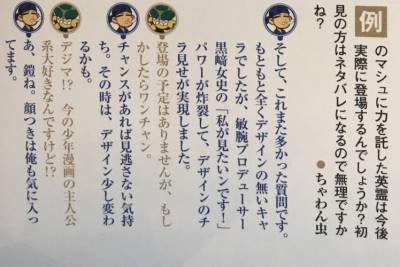 例のマシュに力を託した英霊は今後
実際に登場するんでしょうか?初
見の方はネタバレになるので無理ですか
ね?
●ちゃわん虫
そして、これまた多かった質問です。
もともと全くデザインの無いキャ
ラでしたが、敏腕プロデューサー
黒﨑女史の「私が見たいンです!」
パワーが炸裂して、デザインのチ
ラ見せが実現しました。
登場の予定はありませんが、もし
かしたらワンチャン。
チャンスがあれば見逃さない気持
ち。その時は、デザイン少し変わ
るかも。
デジマ!? 今の少年漫画の主人公
系大好きなんですけど!?
あ、鎧ね。顔つきは俺も気に入っ
てます。